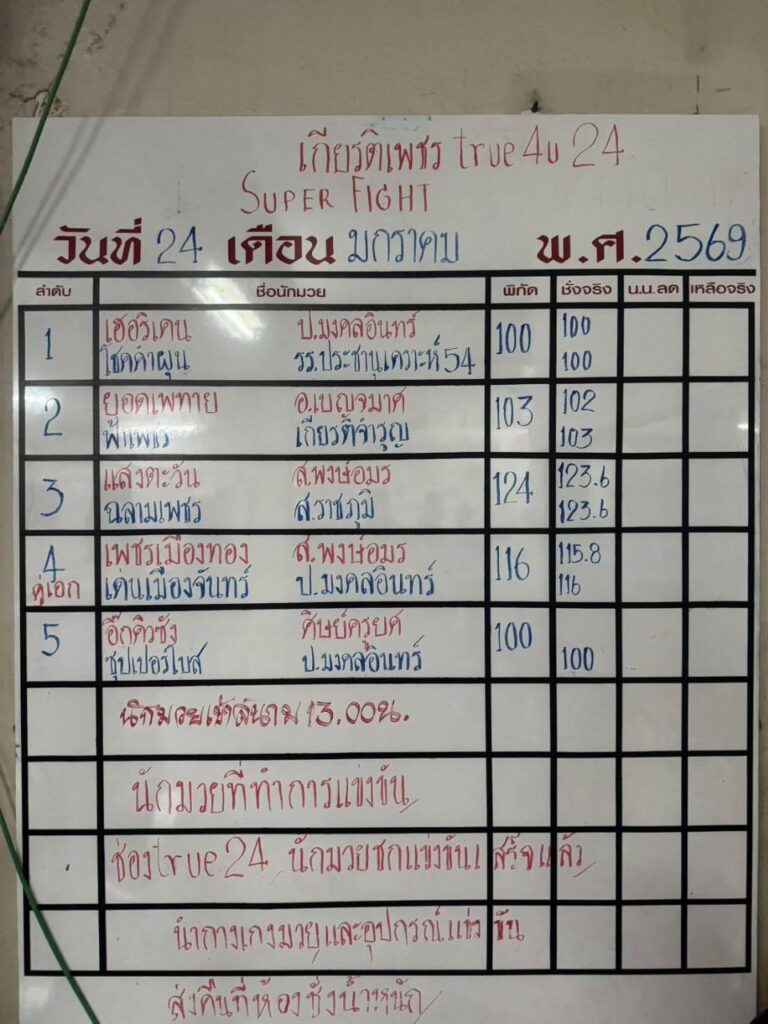 เกียรติเพชร true4u 24
SUPER FIGHT
วันที่ 24 เดือน มกราคม พ.ศ. 2569
ลำดับ ชื่อนักมวย พิกัด ชั่งจริง น.น.ลด เหลือจริง
1 เฮอริเคน ป.มงคลอินทร์ 100 100
โชคคำผุน รร.ประชานุเคราะห์ 54 100
2 ยอดเพทาย อ.เบญจมาศ 103 102
ฟ้าเพชร เกียรติจำรูญ 103
3 แสงตะวัน ส.พงษ์อมร 124 123.6
ฉลามเพชร ส.ราชภูมิ 123.6
4 เพชรเมืองทอง ส.พงษ์อมร 116 115.8
คู่เอก เด่นเมืองจันทร์ ป.มงคลอินทร์ 116
5 อิ๊กคิวซัง ศิษย์ครูยศ 100
ซุปเปอร์ใบส ป.มงคลอินทร์ 100
นักมวยเข้าสนาม 13.00น.
นักมวยที่ทำการแข่งขัน
ช่องtrue24 นักมวยชกแข่งขันเสร็จแล้ว
นำกางเกงมวยและอุปกรณ์แข่งขัน
ส่งคืนที่ห้องชั่งน้ำหนัก